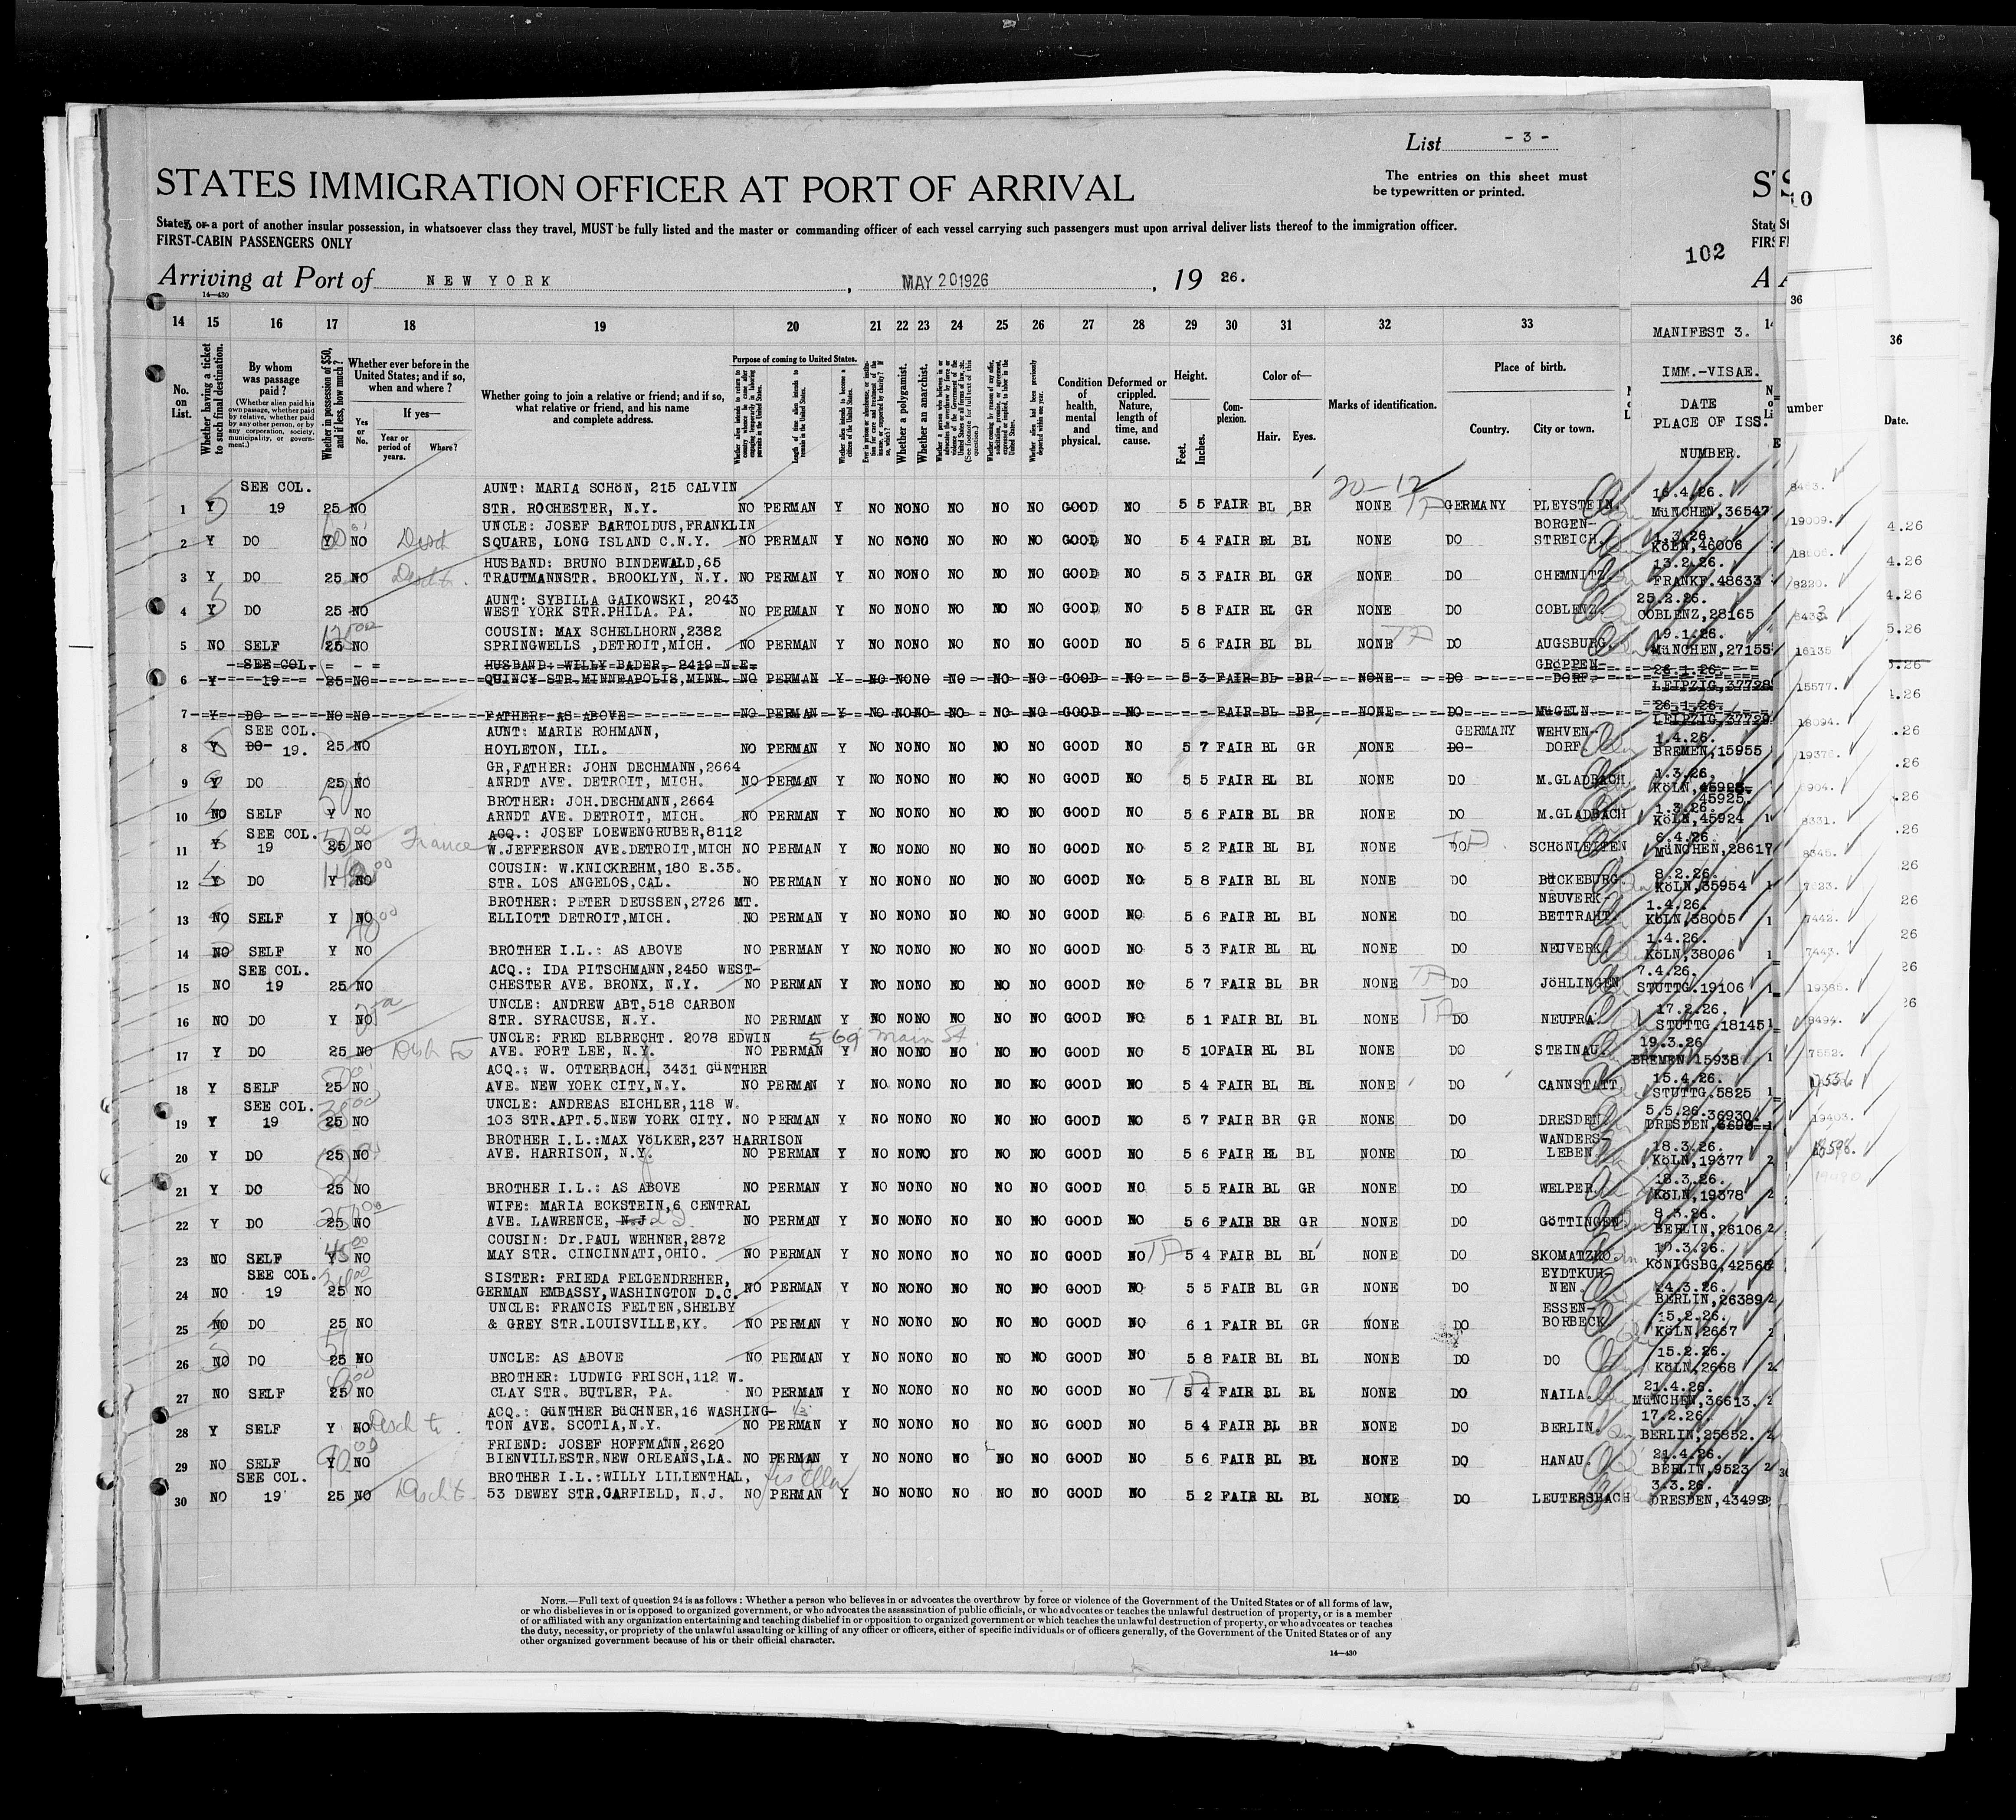 List - 3 -
STATES IMMIGRATION OFFICER AT PORT OF ARRIVAL
The entries on this sheet must
be typewritten or printed.
States, or a port of another insular possession, in whatsoever class they travel, MUST be fully listed and the master or commanding officer of each vessel carrying such passengers must upon arrival deliver lists thereof to the immigration officer.
FIRST-CABIN PASSENGERS ONLY
102
Arriving at Port of NEW YORK, MAY 20 1926, 19 26.
14—430
14 15 16 17 18 19 20 21 22 23 24 25 26 27 28 29 30 31 32 33
MANIFEST 3.
IMM.-VISAE.
DATE
PLACE OF ISS.
NUMBER.
No. on List.
Whether having a ticket to such final destination.
By whom was passage paid?
(Whether alien paid his own passage, whether paid by relative, whether paid by any other person, or by any corporation, society, municipality, or government.)
Whether in possession of $50, and if less, how much?
Whether ever before in the United States; and if so, when and where?
Yes or No.
If yes—
Year or period of years.
Where?
Whether going to join a relative or friend; and if so, what relative or friend, and his name and complete address.
Purpose of coming to United States.
Length of time alien intends to remain in the United States.
Whether alien intends to become a citizen of the United States.
Whether a polygamist.
Whether an anarchist.
Condition of health, mental and physical.
Deformed or crippled. Nature, length of time, and cause.
Height.
Feet. Inches.
Complexion.
Color of—
Hair. Eyes.
Marks of identification.
Place of birth.
Country. City or town.
20-12
SEE COL. AUNT: MARIA SCHöN, 215 CALVIN 16.4.26.
1 Y 19 25 NO STR. ROCHESTER, N.Y. NO PERMAN Y NO NO NO NO NO NO GOOD NO 5 5 FAIR BL BR NONE GERMANY PLEYSTEIN. MüNCHEN,36547
UNCLE: JOSEF BARTOLDUS,FRANKLIN BORGEN- 1.3.26.
2 Y DO Y NO SQUARE, LONG ISLAND C.N.Y. NO PERMAN Y NO NO NO NO NO NO GOOD NO 5 4 FAIR BL BL NONE DO STREICH. KöLN,46006
HUSBAND: BRUNO BINDEWALD,65 13.2.26.
3 Y DO 25 NO TRAUTMANNSTR. BROOKLYN, N.Y. NO PERMAN Y NO NO NO NO NO NO GOOD NO 5 3 FAIR BL GR NONE DO CHEMNITZ FRANKF.48633
AUNT: SYBILLA GAIKOWSKI, 2043 25.2.26.
4 Y DO 25 NO WEST YORK STR.PHILA. PA. NO PERMAN Y NO NO NO NO NO NO GOOD NO 5 8 FAIR BL GR NONE DO COBLENZ COBLENZ,28165
COUSIN: MAX SCHELLHORN,2382 19.1.26.
5 NO SELF 25 NO SPRINGWELLS ,DETROIT,MICH. NO PERMAN Y NO NO NO NO NO NO GOOD NO 5 6 FAIR BL BL NONE DO AUGSBURG. MüNCHEN,27155
SEE COL. HUSBAND: WILLY BADER, 2419 N.E. GRöPPEN- 26.1.26.
6 Y 19 25 NO QUINCY STR.MINNEAPOLIS,MINN. NO PERMAN Y NO NO NO NO NO NO GOOD NO 5 3 FAIR BL BR NONE DO DORF. LEIPZIG,37728
26.1.26.
7 Y DO NO NO FATHER: AS ABOVE NO PERMAN Y NO NO NO NO NO NO GOOD NO FAIR BL BR NONE DO MüGELN. LEIPZIG,37729
SEE COL. AUNT: MARIE ROHMANN, GERMANY WEHVEN- 1.4.26.
8 Y DO- 19. 25 NO HOYLETON, ILL. NO PERMAN Y NO NO NO NO NO NO GOOD NO 5 7 FAIR BL GR NONE DO- DORF BREMEN,15955
GR,FATHER: JOHN DECHMANN,2664 1.3.26.
9 Y DO 25 NO ANRDT AVE. DETROIT, MICH. NO PERMAN Y NO NO NO NO NO NO GOOD NO 5 5 FAIR BL BL NONE DO M.GLADBACH KöLN, 45925.
BROTHER: JOH.DECHMANN,2664 1.3.26.
10 NO SELF Y NO ARNDT AVE. DETROIT, MICH. NO PERMAN Y NO NO NO NO NO NO GOOD NO 5 6 FAIR BL BR NONE DO M.GLADBACH KöLN,45924
SEE COL. ACQ.: JOSEF LOEWENGRUBER,8112 6.4.26.
11 Y 19 25 NO France W.JEFFERSON AVE.DETROIT,MICH NO PERMAN Y NO NO NO NO NO NO GOOD NO 5 2 FAIR BL BL NONE DO SCHöNLEITEN MüNCHEN,28617
COUSIN: W.KNICKREHM,180 E.35. 8.2.26.
12 Y DO Y NO STR. LOS ANGELOS,CAL. NO PERMAN Y NO NO NO NO NO NO GOOD NO 5 8 FAIR BL BL NONE DO BüCKEBURG. KöLN,35954
BROTHER: PETER DEUSSEN,2726 MT. NEUVERK- 1.4.26.
13 NO SELF Y NO ELLIOTT DETROIT,MICH. NO PERMAN Y NO NO NO NO NO NO GOOD NO 5 6 FAIR BL BL NONE DO BETTRAHT KöLN,38005
1.4.26.
14 NO SELF Y NO BROTHER I.L.: AS ABOVE NO PERMAN Y NO NO NO NO NO NO GOOD NO 5 3 FAIR BL BL NONE DO NEUVERK. KöLN,38006
SEE COL. ACQ.: IDA PITSCHMANN,2450 WEST- 7.4.26.
15 NO 19 25 NO CHESTER AVE. BRONX, N.Y. NO PERMAN Y NO NO NO NO NO NO GOOD NO 5 7 FAIR BL BR NONE DO JöHLINGEN STUTTG.19106
UNCLE: ANDREW ABT,518 CARBON 17.2.26.
16 NO DO Y NO STR. SYRACUSE, N.Y. NO PERMAN Y NO NO NO NO NO NO GOOD NO 5 1 FAIR BL BL NONE DO NEUFRA. STUTTG.18145
UNCLE: FRED ELBRECHT. 2078 EDWIN 569 Main St. 19.3.26
17 Y DO 25 NO AVE. FORT LEE, N.Y. NO PERMAN Y NO NO NO NO NO NO GOOD NO 5 10 FAIR BL BL NONE DO STEINAU. BREMEN,15938
ACQ.: W. OTTERBACH, 3431 GüNTHER 15.4.26.
18 Y SELF 25 NO AVE. NEW YORK CITY,N.Y. NO PERMAN Y NO NO NO NO NO NO GOOD NO 5 4 FAIR BL BL NONE DO CANNSTATT STUTTG.5825
SEE COL. UNCLE: ANDREAS EICHLER,118 W. 5.5.26.36930
19 Y 19 25 NO 103 STR.APT.5.NEW YORK CITY. NO PERMAN Y NO NO NO NO NO NO GOOD NO 5 7 FAIR BR GR NONE DO DRESDEN DRESDEN,
BROTHER I.L.:MAX VöLKER,237 HARRISON WANDERS- 18.3.26.
20 Y DO 25 NO AVE. HARRISON, N.Y. NO PERMAN Y NO NO NO NO NO NO GOOD NO 5 6 FAIR BL BL NONE DO LEBEN KöLN,19377
18.3.26.
21 Y DO 25 NO BROTHER I.L.: AS ABOVE NO PERMAN Y NO NO NO NO NO NO GOOD NO 5 5 FAIR BL GR NONE DO WELPER. KöLN,19378
WIFE: MARIA ECKSTEIN,6 CENTRAL 8.3.26.
22 Y DO 25 NO AVE. LAWRENCE, N.J. NO PERMAN Y NO NO NO NO NO NO GOOD NO 5 6 FAIR BR GR NONE DO GöTTINGEN BERLIN,26106
COUSIN: Dr.PAUL WEHNER,2872 10.3.26.
23 NO SELF Y NO MAY STR. CINCINNATI,OHIO. NO PERMAN Y NO NO NO NO NO NO GOOD NO 5 4 FAIR BL BL NONE DO SKOMATZKO KöNIGSBG,42565
SEE COL. SISTER: FRIEDA FELGENDREHER, EYDTKUH- 24.3.26.
24 NO 19 25 NO GERMAN EMBASSY,WASHINGTON D.C. NO PERMAN Y NO NO NO NO NO NO GOOD NO 5 5 FAIR BL GR NONE DO NEN. BERLIN,26389
UNCLE: FRANCIS FELTEN,SHELBY ESSEN- 15.2.26.
25 NO DO 25 NO & GREY STR.LOUISVILLE,KY. NO PERMAN Y NO NO NO NO NO NO GOOD NO 6 1 FAIR BL GR NONE DO BORBECK KöLN,2667
15.2.26.
26 NO DO 25 NO UNCLE: AS ABOVE NO PERMAN Y NO NO NO NO NO NO GOOD NO 5 8 FAIR BL BL NONE DO DO KöLN,2668
BROTHER: LUDWIG FRISCH,112 W. 21.4.26.
27 NO SELF 25 NO CLAY STR. BUTLER, PA. NO PERMAN Y NO NO NO NO NO NO GOOD NO 5 4 FAIR BL BL NONE DO NAILA. MüNCHEN,36613.
ACQ.: GüNTHER BüCHNER,16 WASHING- 17.2.26.
28 Y SELF Y NO TON AVE. SCOTIA,N.Y. NO PERMAN Y NO NO NO NO NO NO GOOD NO 5 4 FAIR BL BR NONE DO BERLIN. BERLIN,25852.
FRIEND: JOSEF HOFFMANN,2620 21.4.26.
29 NO SELF Y NO BIENVILLESTR.NEW ORLEANS,LA. NO PERMAN Y NO NO NO NO NO NO GOOD NO 5 6 FAIR BL BL NONE DO HANAU. BERLIN,9523
SEE COL. BROTHER I.L.:WILLY LILIENTHAL, 3.3.26.
30 NO 19 25 NO 53 DEWEY STR.GARFIELD, N.J. NO PERMAN Y NO NO NO NO NO NO GOOD NO 5 2 FAIR BL BL NONE DO LEUTERSBACH DRESDEN,43499
NOTE.—Full text of question 24 is as follows: Whether a person who believes in or advocates the overthrow by force or violence of the Government of the United States or of all forms of law,
or who disbelieves in or is opposed to organized government, or who advocates the assassination of public officials, or who advocates or teaches the unlawful destruction of property, or is a member
of or affiliated with any organization entertaining and teaching disbelief in or opposition to organized government or which teaches the unlawful destruction of property, or who advocates or teaches
the duty, necessity, or propriety of the unlawful assaulting or killing of any officer or officers, either of specific individuals or of officers generally, of the Government of the United States or of any
other organized government because of his or their official character.
14—430